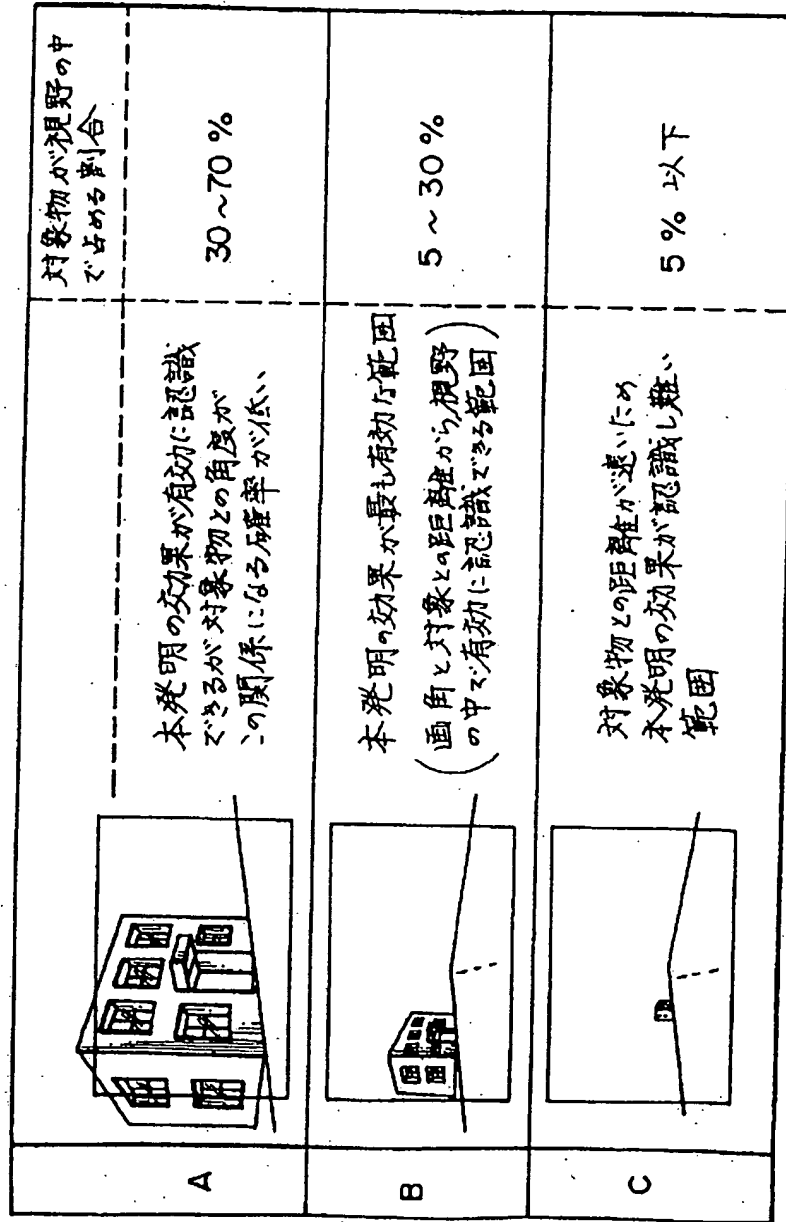 対象物が視野の中
で占める割合
A
本発明の効果が有効に認識
できるが対象物との角度が
この関係になる確率が低い、
30~70%
B
本発明の効果が最も有効な範囲
(画角と対象との距離から視野
の中で有効に認識できる範囲)
5~30%
C
対象物との距離が遠いため
本発明の効果が認識し難い
範囲
5%以下